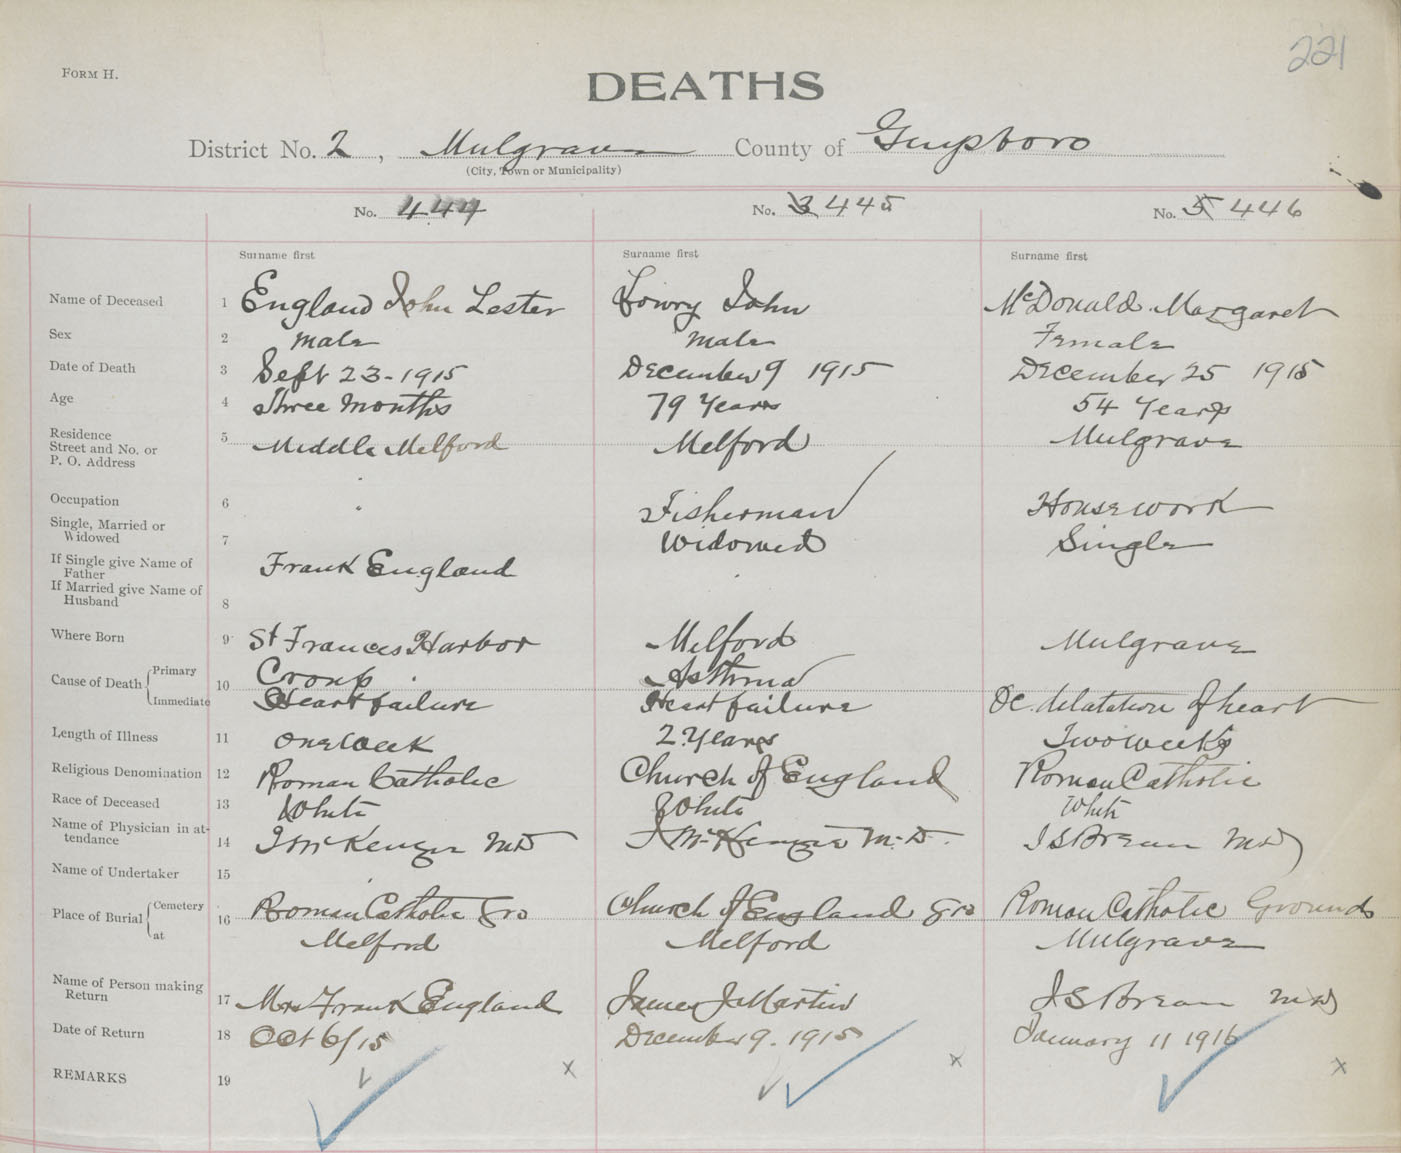 221
FORM H.
DEATHS
District No. 2, Mulgrave County of Guysboro
(City, Town or Municipality)
No. 444 No. 3 445 No. 5 446
Surname first Surname first Surname first
Name of Deceased 1 England John Lester Lowry John McDonald Margaret
Sex 2 male male Female
Date of Death 3 Sept 23-1915 December 9 1915 December 25 1915
Age 4 Three Months 79 Years 54 Years
Residence
Street and No. or
P. O. Address 5 Middle Melford Melford Mulgrave
Occupation 6 Fisherman Housework
Single, Married or
Widowed 7 Widowed Single
If Single give Name of
Father Frank England
If Married give Name of
Husband 8
Where Born 9 St Frances Harbor Melford Mulgrave
Cause of Death Primary 10 Croup Asthma
Immediate Heart failure Heart failure Dc. dilatation of heart
Length of Illness 11 one week 2 Years Two weeks
Religious Denomination 12 Roman Catholic Church of England Roman Catholic
Race of Deceased 13 White White White
Name of Physician in at-
tendance 14 J McKenzie MD J McKenzie M.D. J S Brean MD
Name of Undertaker 15
Place of Burial Cemetery 16 Roman Catholic Gro Church of England Gro Roman Catholic Grounds
at Melford Melford Mulgrave
Name of Person making
Return 17 Mrs Frank England James J Martin J S Brean MD
Date of Return 18 Oct 6/15 December 9. 1915 January 11 1916
REMARKS 19 x x x